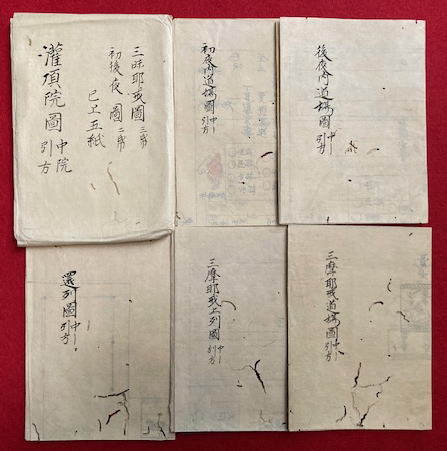 三昧耶戒圖 三帋
初後夜 圖 二帋
已上五紙
灌頂院圖 中院引方
初夜内道場圖 中引方
後夜内道場圖 中引方
還列圖 中引方
三摩耶戒上列圖 中引方
三摩耶戒道場圖 中引方